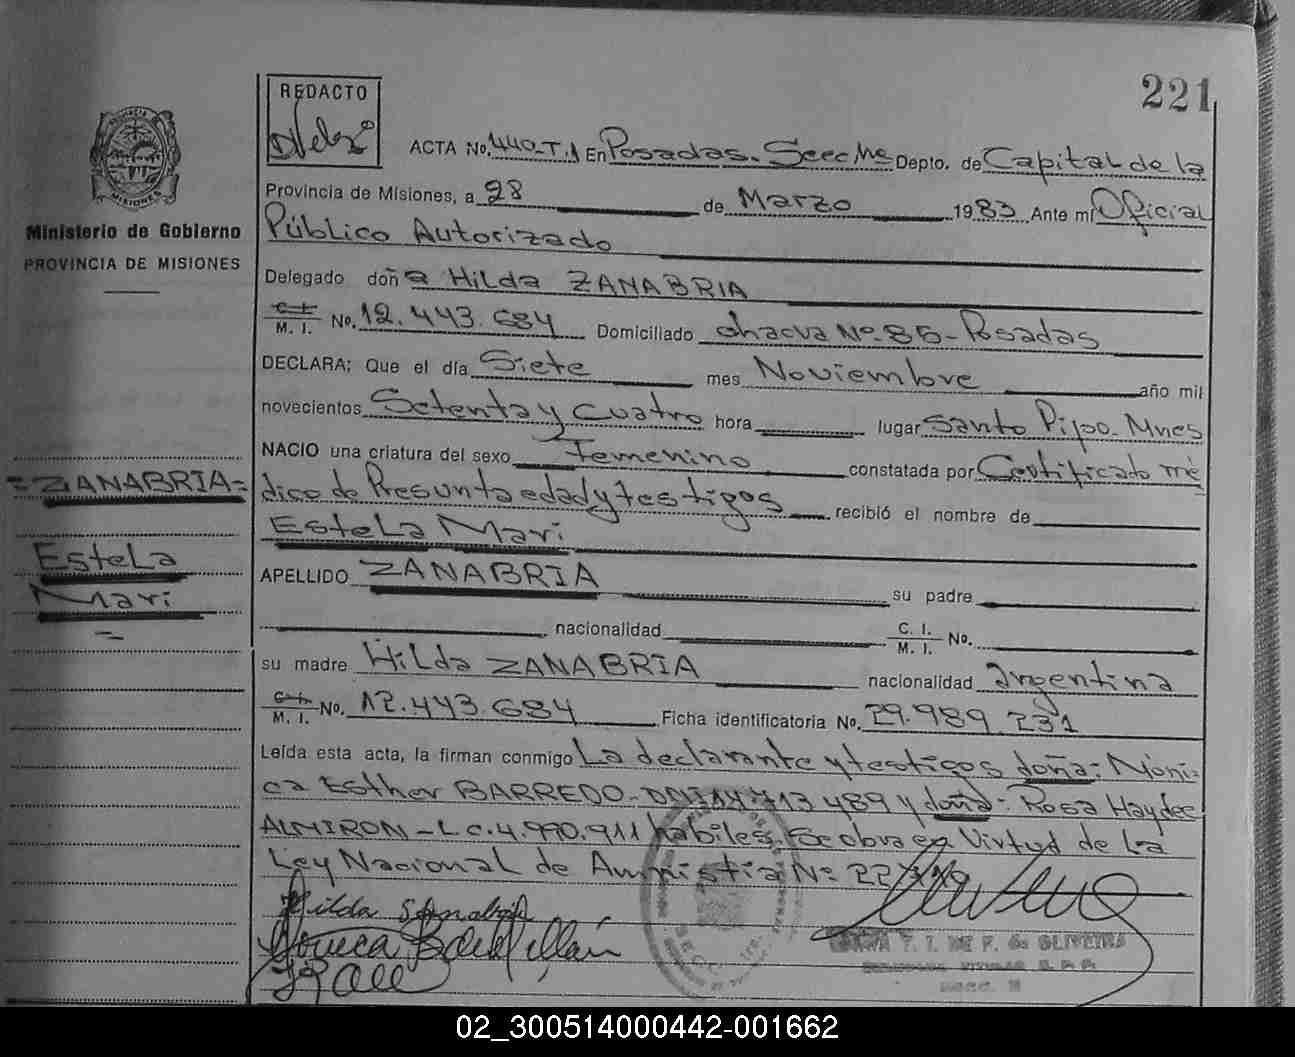 221
REDACTO
ACTA No. 440-T.1 En Posadas. Secc Depto. de Capital de la
Provincia de Misiones, a 28 de Marzo 1983 Ante mí Oficial
Público Autorizado
Ministerio de Gobierno
PROVINCIA DE MISIONES
Delegado doña Hilda ZANABRIA
C. I.
M. I. No. 12.443.684 Domiciliado chacra Nº 85-Posadas
DECLARA; Que el día Siete mes Noviembre año mil
novecientos Setenta y cuatro hora lugar Santo Pipo. Mnes
NACIO una criatura del sexo Femenino constatada por Certificado mé
dico de Presunta edad y testigos recibió el nombre de
Estela Mari
=ZANABRIA=
Estela
Mari
APELLIDO ZANABRIA su padre
nacionalidad C. I.
M. I. No.
su madre Hilda ZANABRIA nacionalidad argentina
C. I.
M. I. No. 12.443.684 Ficha identificatoria No. 29.989.231
Leída esta acta, la firman conmigo La declarante y testigos doña: Móni-
ca Esther BARREDO-DNI 14.713.489 y doña: Rosa Haydee
ALMIRON-L.C.4.990.911 habiles. Se obra en Virtud de La
Ley Nacional de Amnistia Nº
Hilda Sanabria
DE OLIVEIRA
02_300514000442-001662